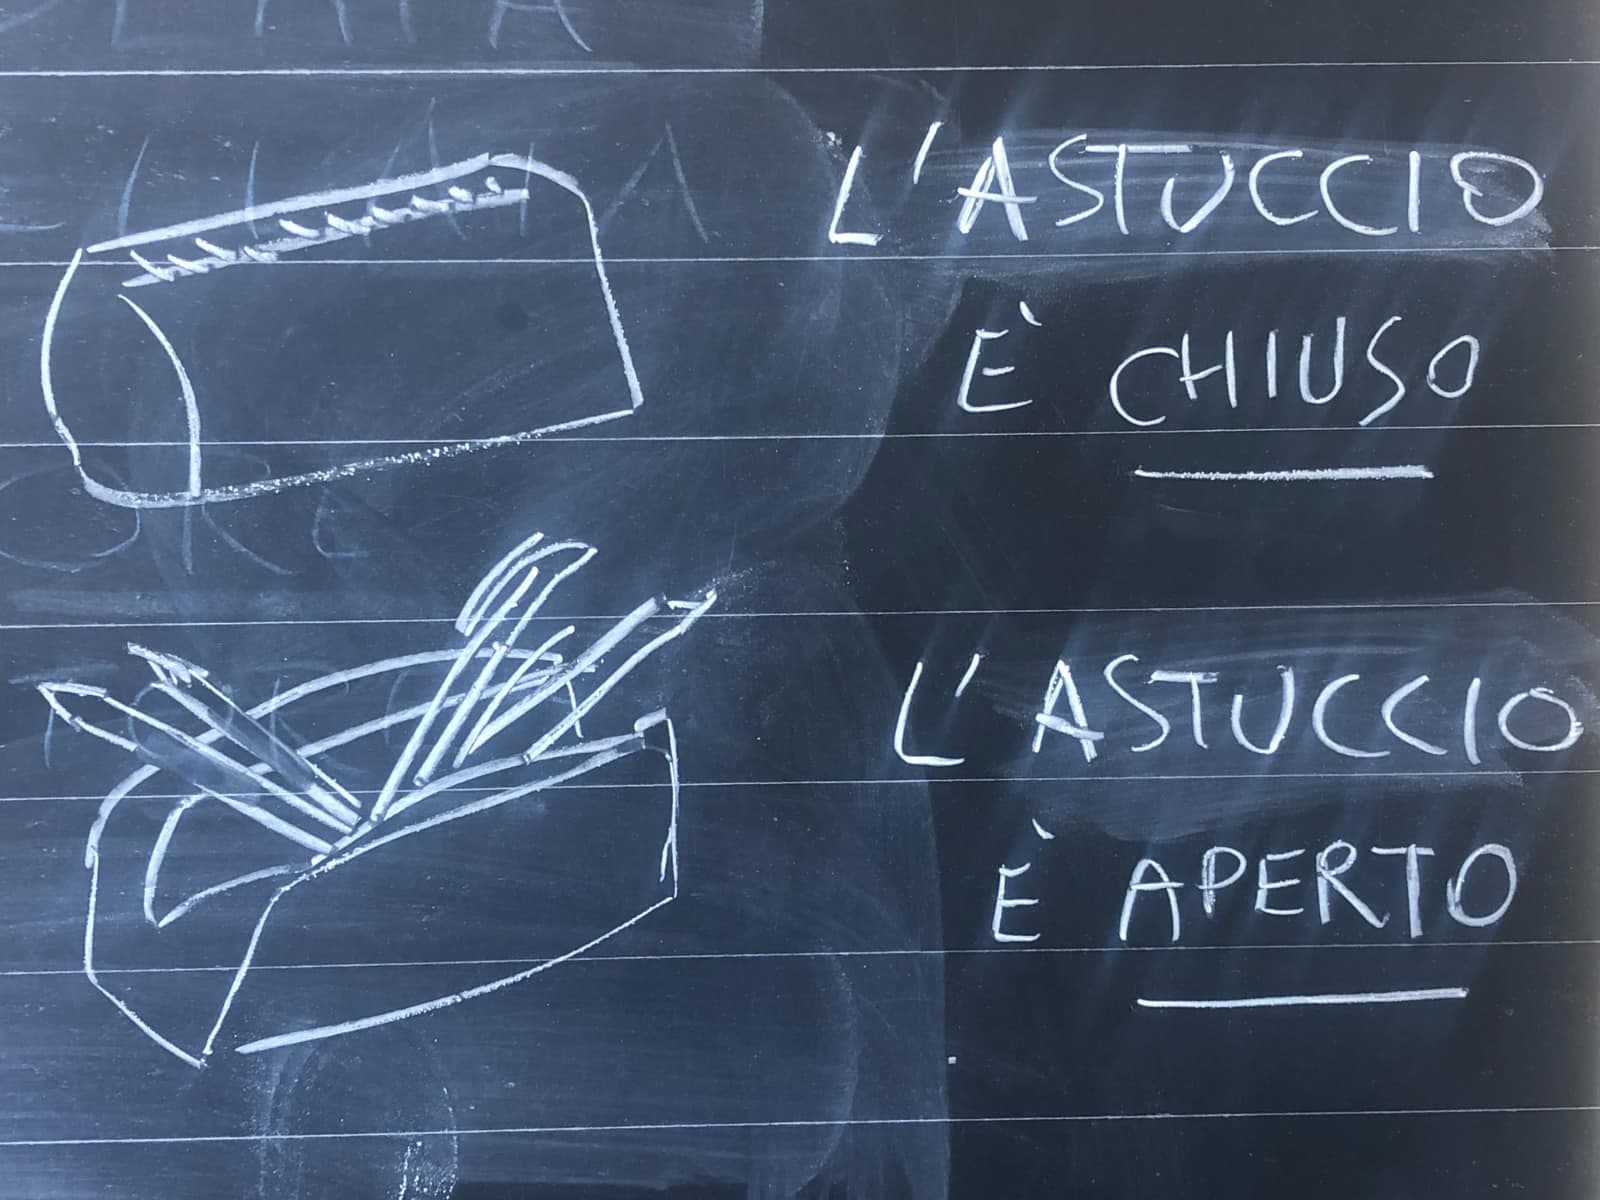 L'ASTUCCIO
È CHIUSO
L'ASTUCCIO
È APERTO